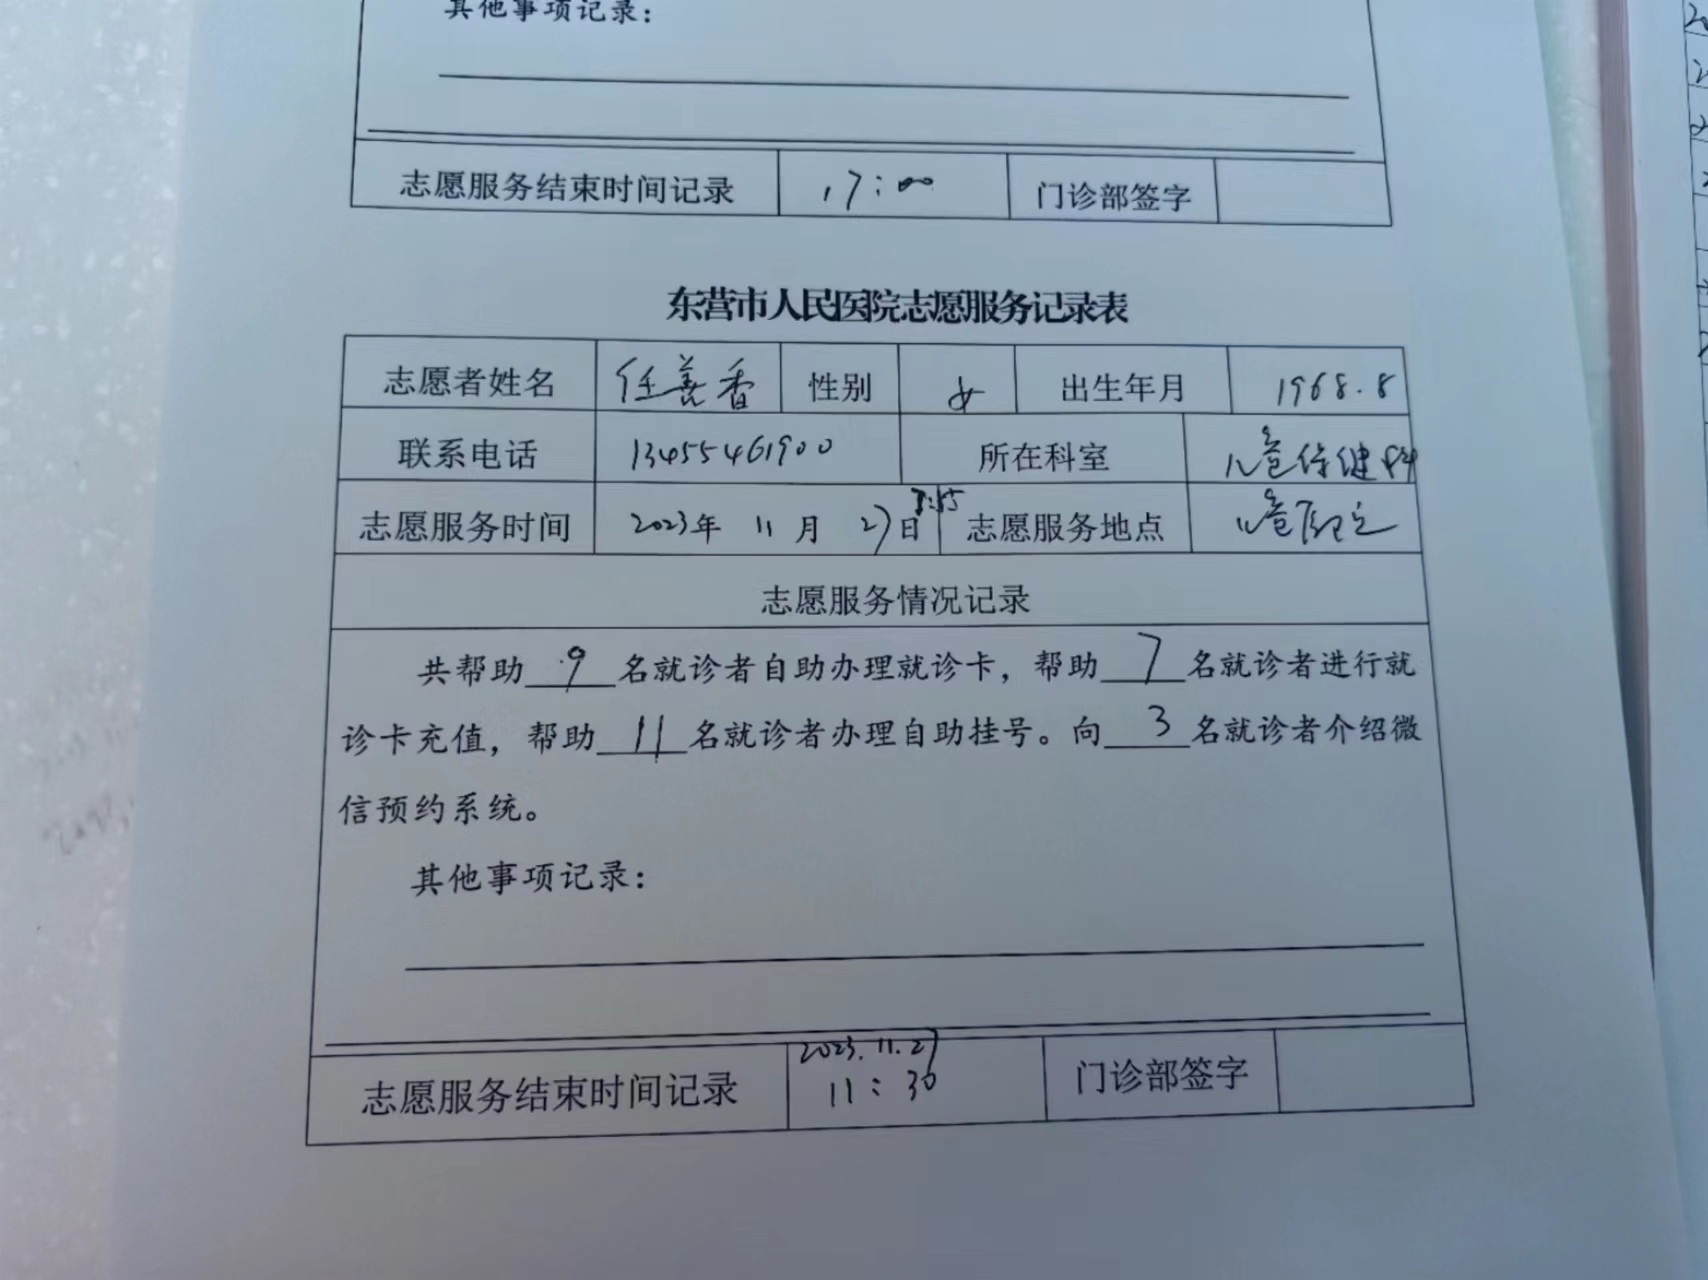 其他事项记录：
志愿服务结束时间记录 17:00 门诊部签字
东营市人民医院志愿服务记录表
志愿者姓名 任善香 性别 女 出生年月 1968.8
联系电话 13455461900 所在科室 儿童保健科
志愿服务时间 2023年 11月 27日 志愿服务地点
志愿服务情况记录
共帮助 9 名就诊者自助办理就诊卡，帮助 7 名就诊者进行就
诊卡充值，帮助 11 名就诊者办理自助挂号。向 3 名就诊者介绍微
信预约系统。
其他事项记录：
2023.11.27
志愿服务结束时间记录 11:30 门诊部签字